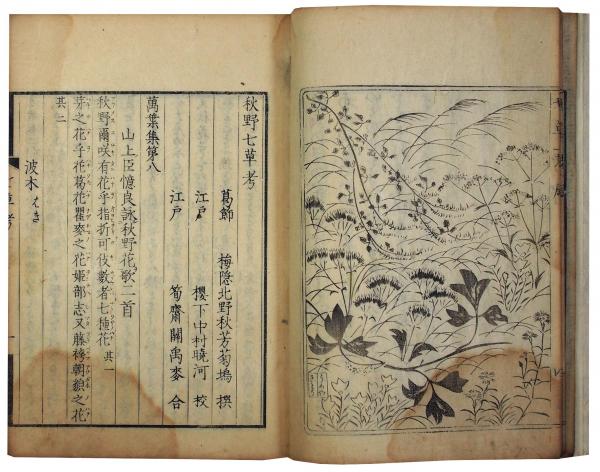 秋野七草考
葛飾 梅隠北野秋芳菊塢 撰
江戸 櫻下中村曉河 校
江戸 筍齋關禹麥 合
萬葉集第八
山上臣憶良詠秋野花歌二首
秋野爾咲有花乎指折可伎數者七種花 其一
芽之花乎花葛花瞿麥之花姫部志又藤袴朝貌之花
其二
波木 はき